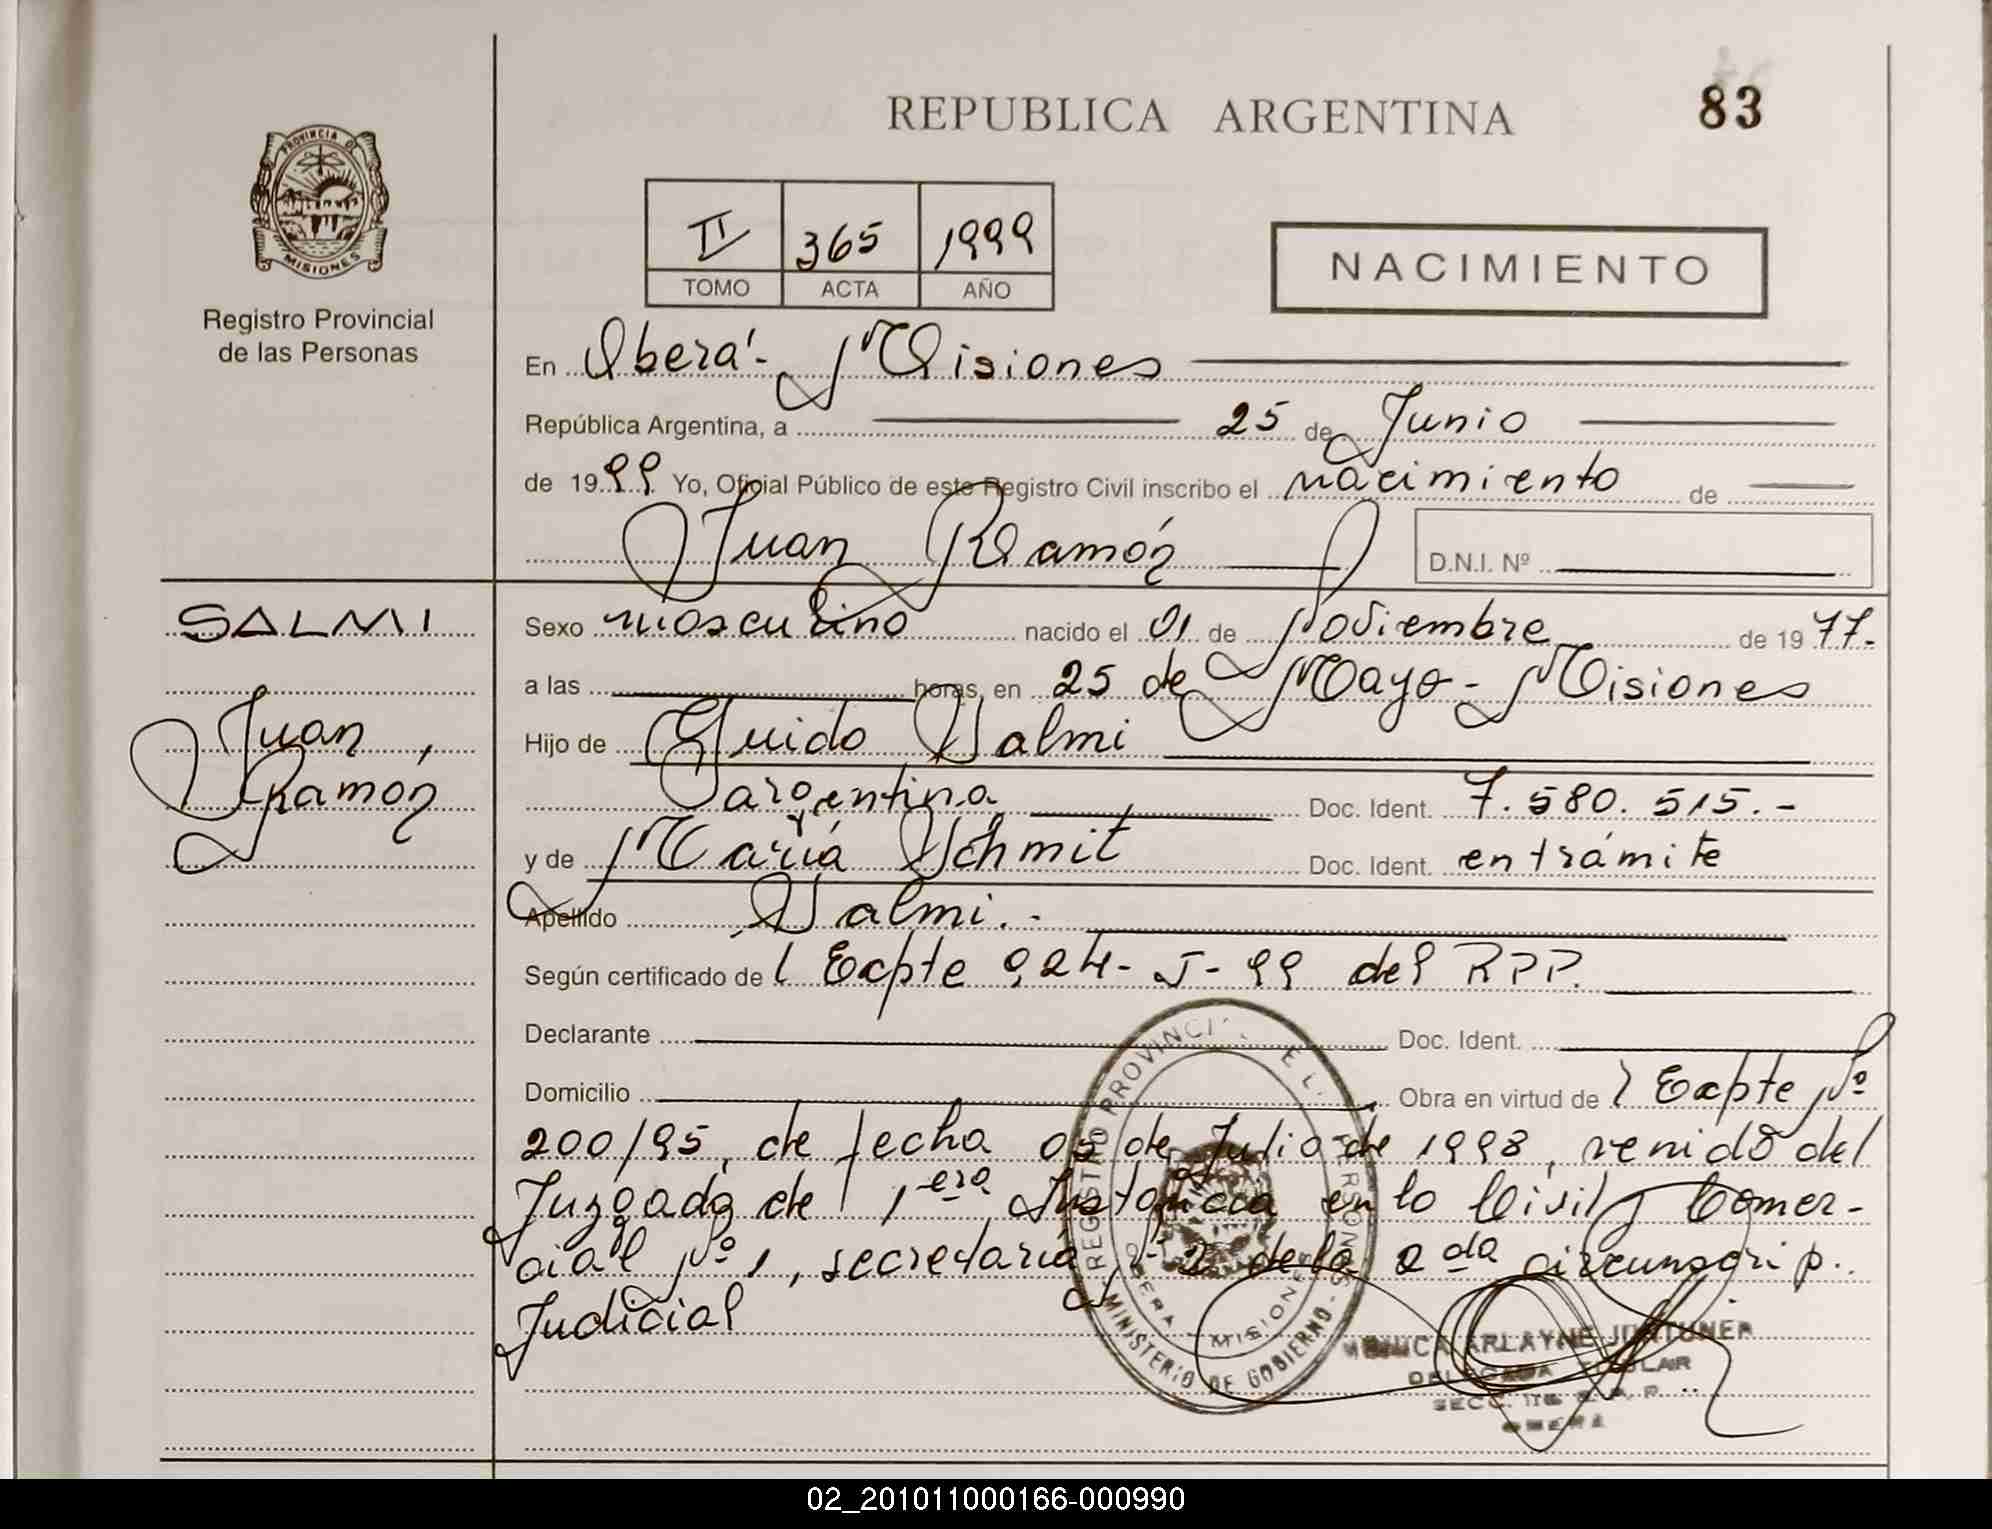 REPUBLICA ARGENTINA
83
PROVINCIA DE
MISIONES
Registro Provincial
de las Personas
II 365 1999
TOMO ACTA AÑO
NACIMIENTO
En Oberá - Misiones
República Argentina, a 25 de Junio
de 1999 Yo, Oficial Público de este Registro Civil inscribo el nacimiento de
Juan Ramón
D.N.I. Nº
SALMI
Juan
Ramón
Sexo masculino nacido el 01 de Noviembre de 1977.-
a las horas, en 25 de Mayo - Misiones
Hijo de Guido Salmi
argentina Doc. Ident. 7.580.515.-
y de María Schmit Doc. Ident. en trámite
Apellido Salmi.-
Según certificado de Expte 924-J-99 del RPP.
Declarante Doc. Ident.
Domicilio Obra en virtud de Expte Nº
200/95, de fecha 03 de Julio de 1998, venido del
Juzgado de 1era Instancia en lo Civil y Comer-
cial Nº 1, secretaría Nº 2 de la 2da circunscrip.
Judicial
REGISTRO PROVINCIAL DE LAS PERSONAS
OBERA - MISIONES
MINISTERIO DE GOBIERNO
MONICA ARLAYNE
DELEGADA TITULAR
SECC. R. P. P.
OBERA
02_201011000166-000990